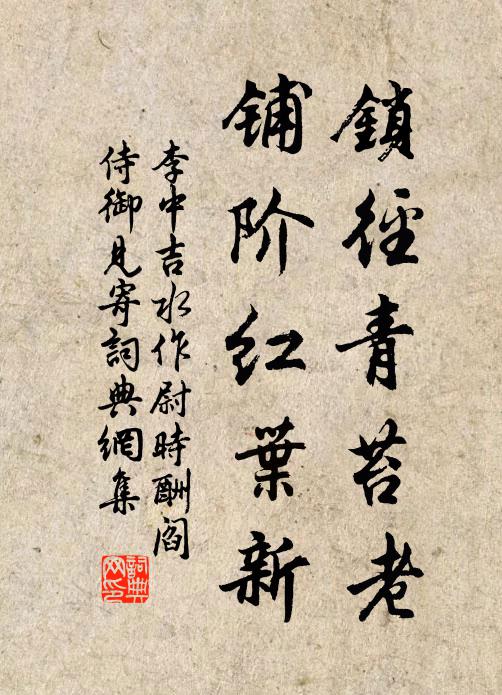 鎖徑青苔老
铺阶红葉新
李中吉水作尉時酬阎
侍御見寄詞典網集
詞典网印